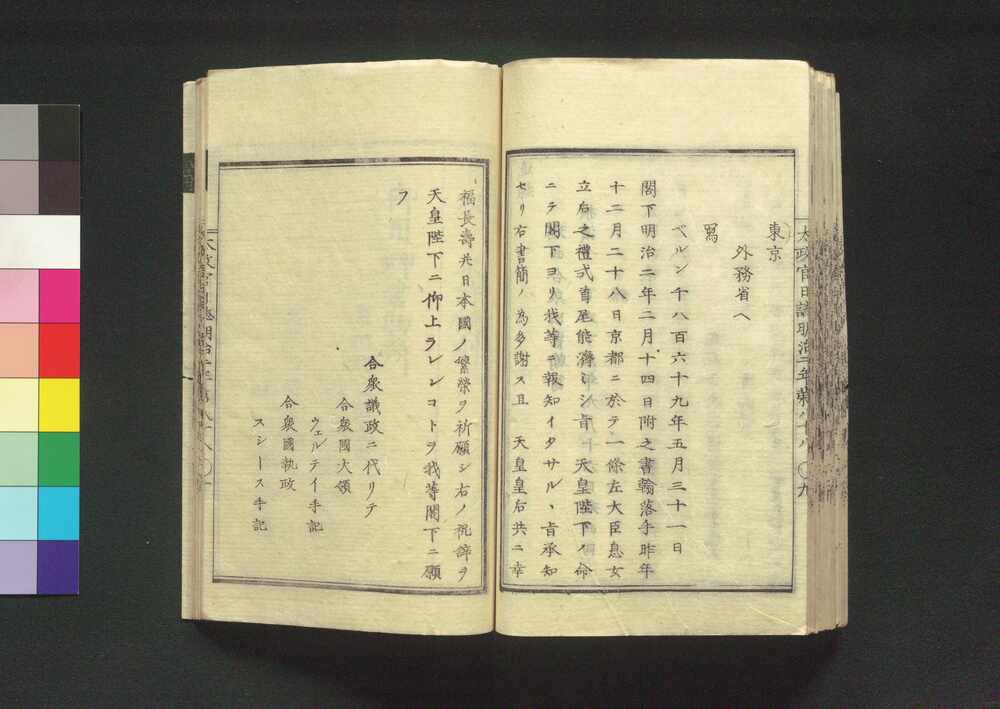 東京
外務省へ
寫
ベルン千八百六十九年五月三十一日
閣下明治二年二月十四日附之書翰落手昨年
十二月二十八日京都ニ於テ一條左大臣息女
立后之禮式首尾能濟シ旨 天皇陛下ノ命
ニテ閣下ヨリ我等ニ報知イタサル丶旨承知
セリ右書簡ノ為多謝ス且 天皇皇后共ニ幸
福長壽共日本國ノ繁榮ヲ祈願シ右ノ祝辞ヲ
天皇陛下ニ仰上ラレンコトヲ我等閣下ニ願
フ
合衆議政ニ代リテ
合衆國大領
ウェルテイ手記
合衆國執政
スシース手記
太政官日誌明治二年第八十八 九